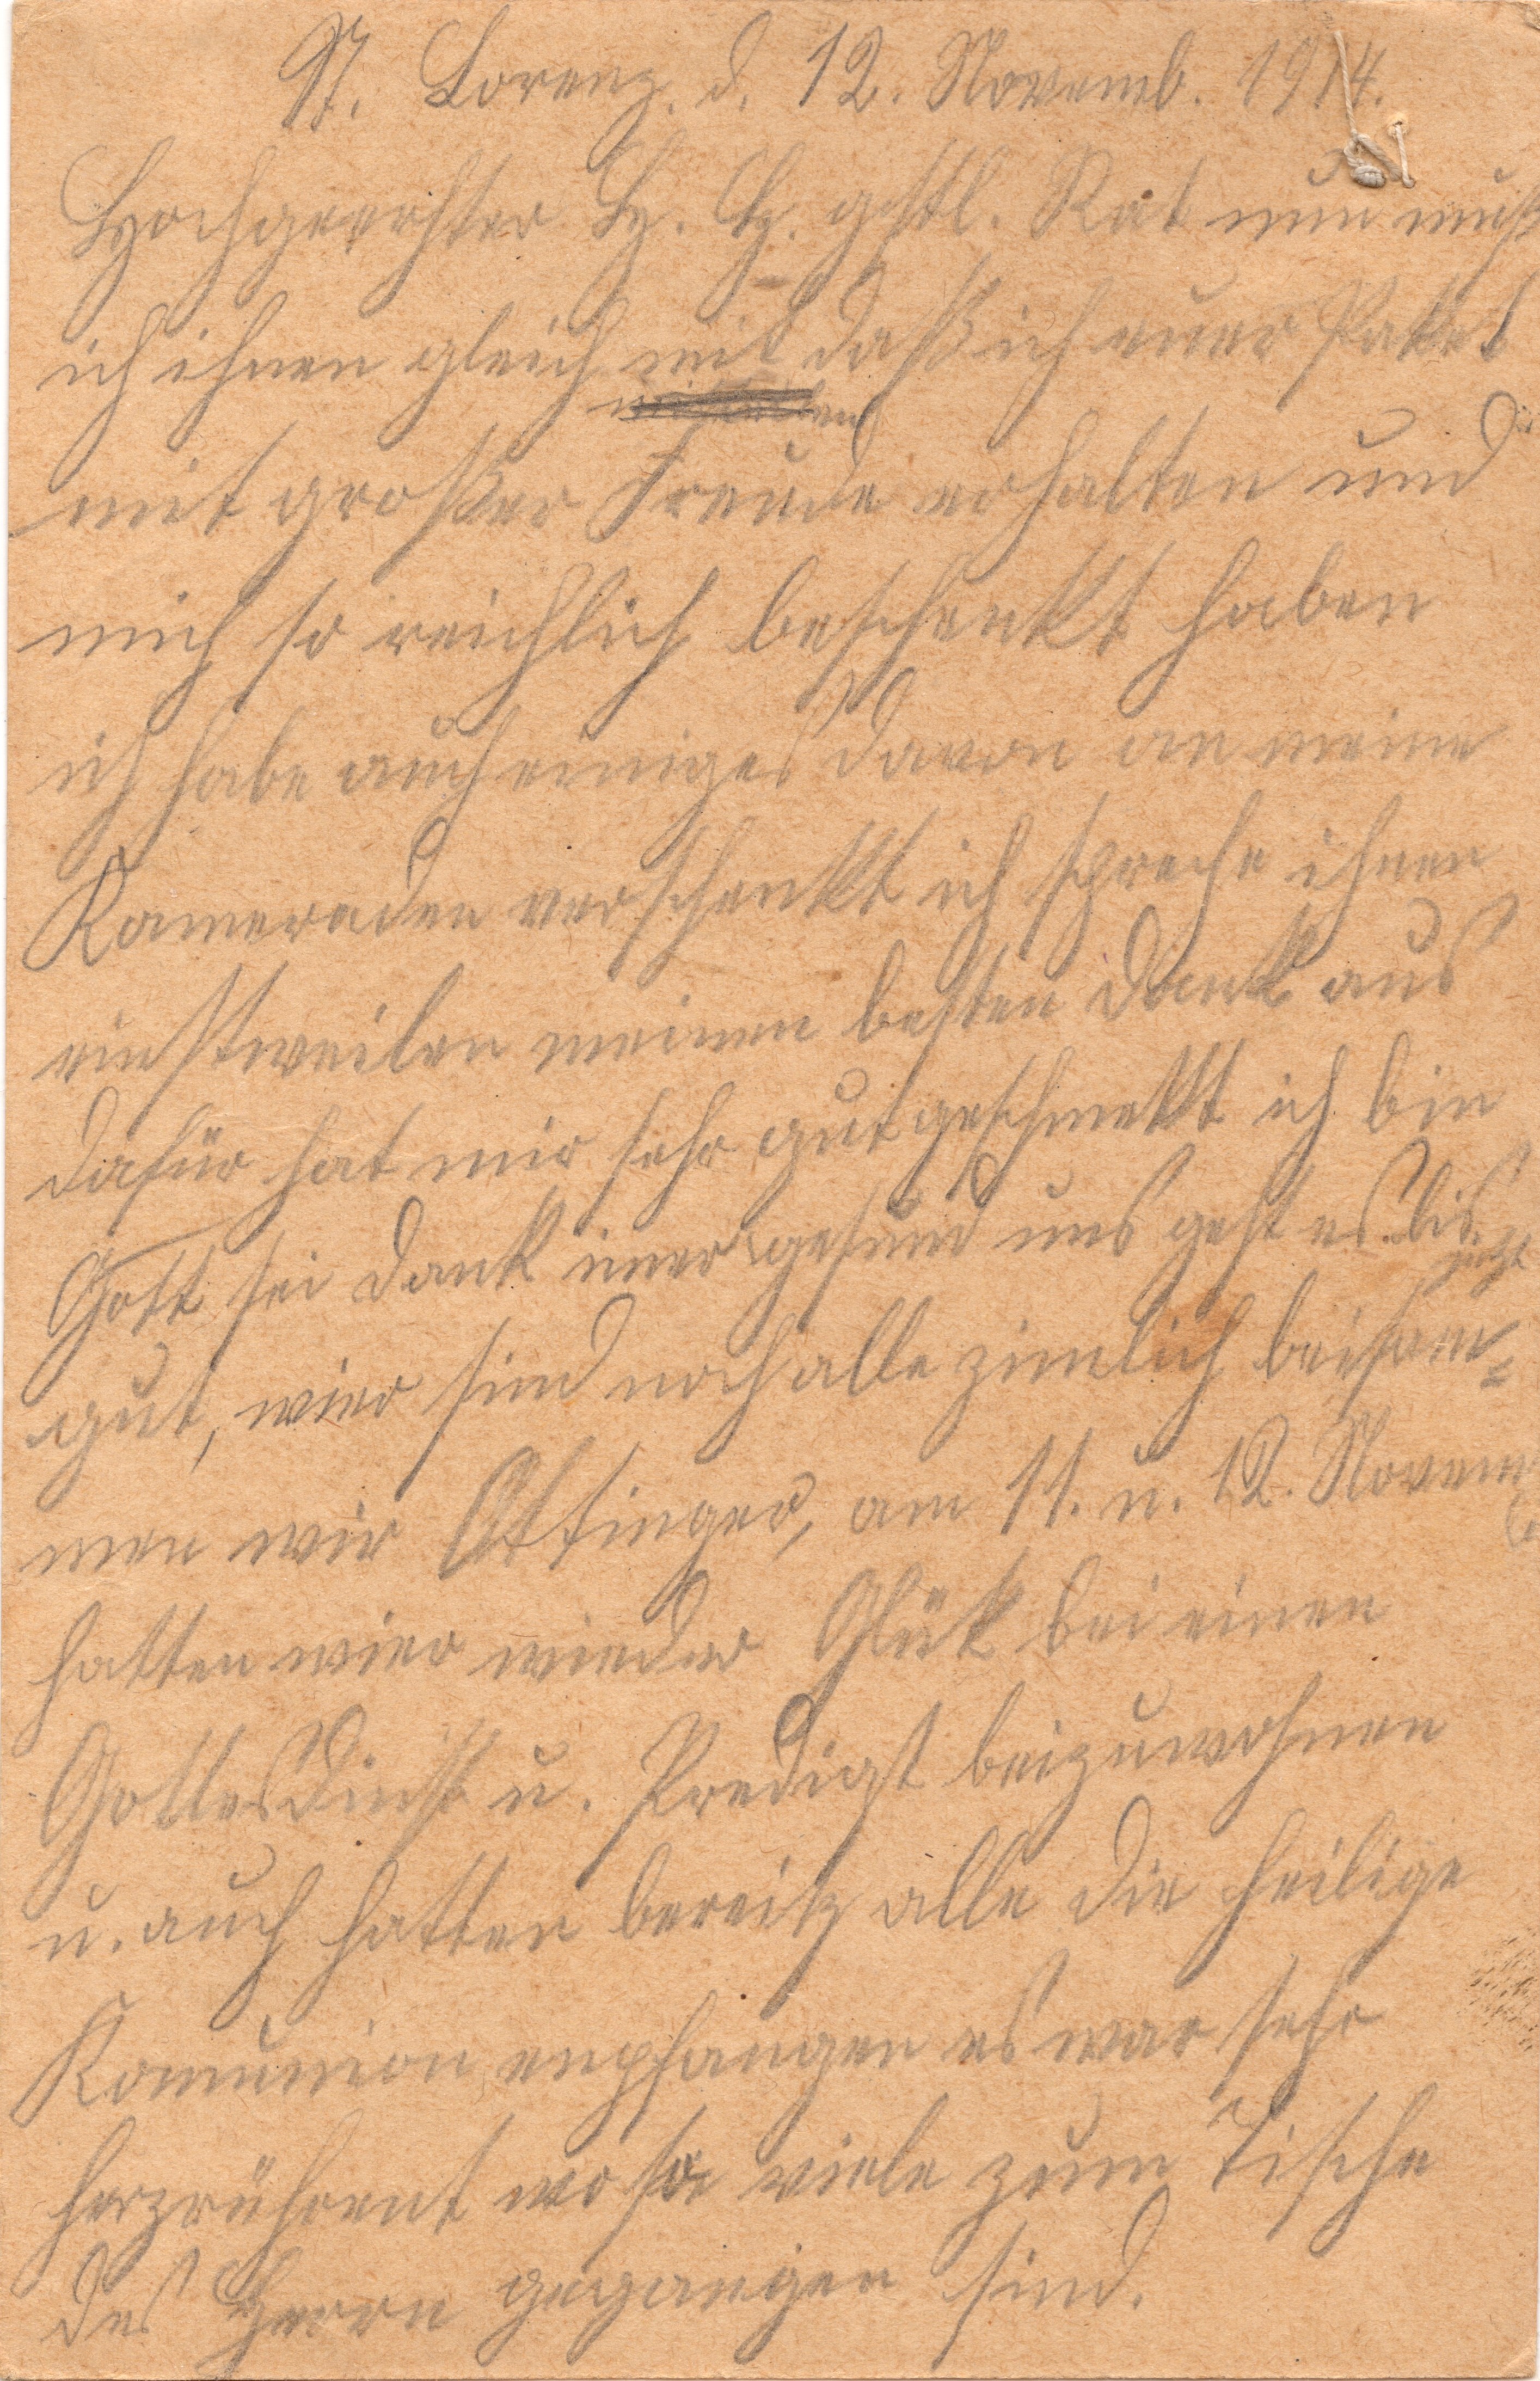 St. Lorenz. d. 12. Novemb. 1914.
Hochgeerhter H. H. gstl. Rat nun muß
ich ihnen gleich mit daß ich euer Paket
mit großer Freude erhalten und
mich so reichlich beschenkt haben
ich habe auch einiges davon an meine
Kameraden verschenkt ich spreche ihnen
einstweilen meinen besten Dank aus
dafür hat mir sehr gut geschmekt ich bin
Gott sei Dank imer gesund uns geht es bis
jezt
gut, wier sind noch alle zimlich beisam=
men wir Ottinger, am 11. u. 12. Novem
hatten wier wieder Glük bei einen
Gottesdinst u. Predigt beizuwohnen
u. auch hatten bereitz alle die heilige
Komunion enpfangen es war sehr
herzrührent wo so viele zum Tische
des Herrn gegangen sind.